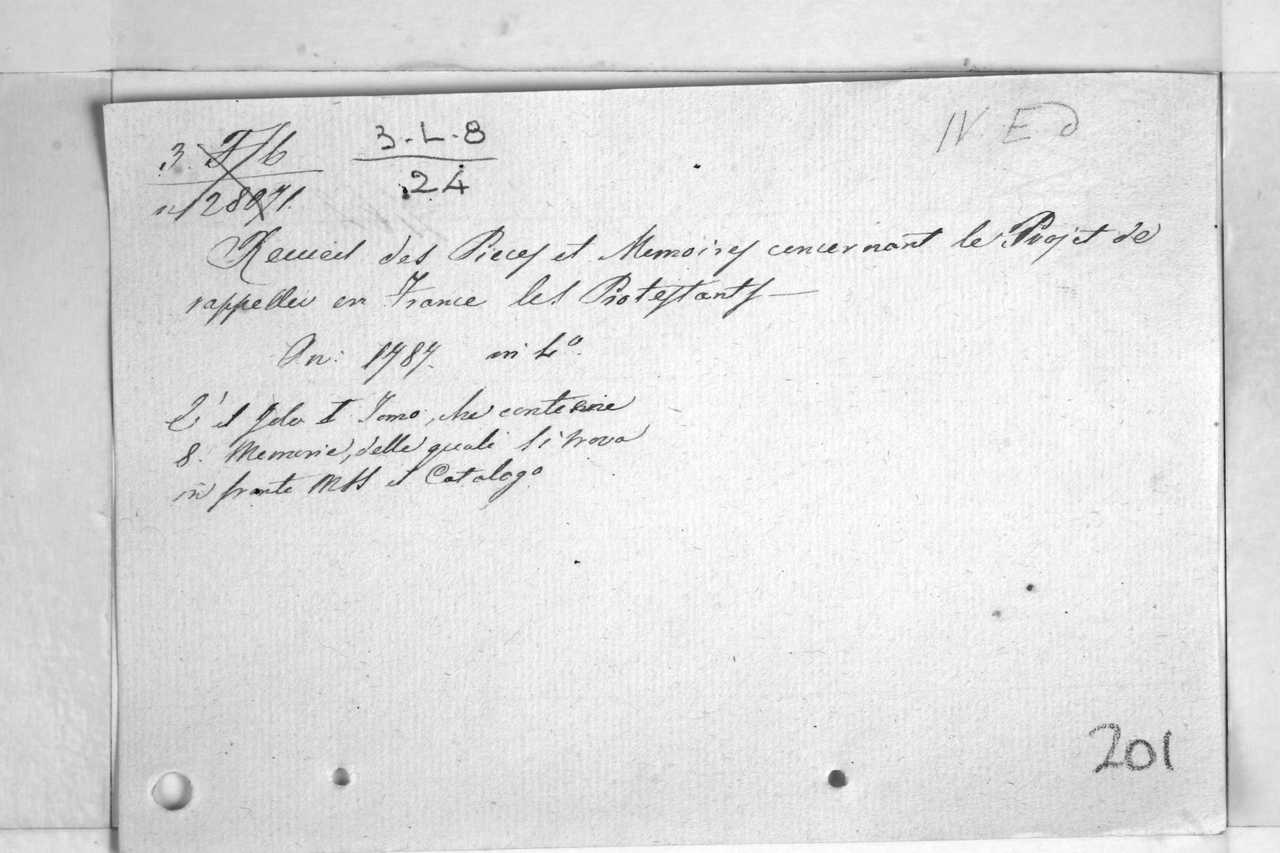 3. L. 8
24
IV. E d
Recueil des Pieces et Memoires concernant le Projet de
rappeller en France les Protestants —
An: 1787. in 4º.
è il Tomo, che contiene
8. Memorie, delle quali si trova
in fronte MSS il Catalogo
201